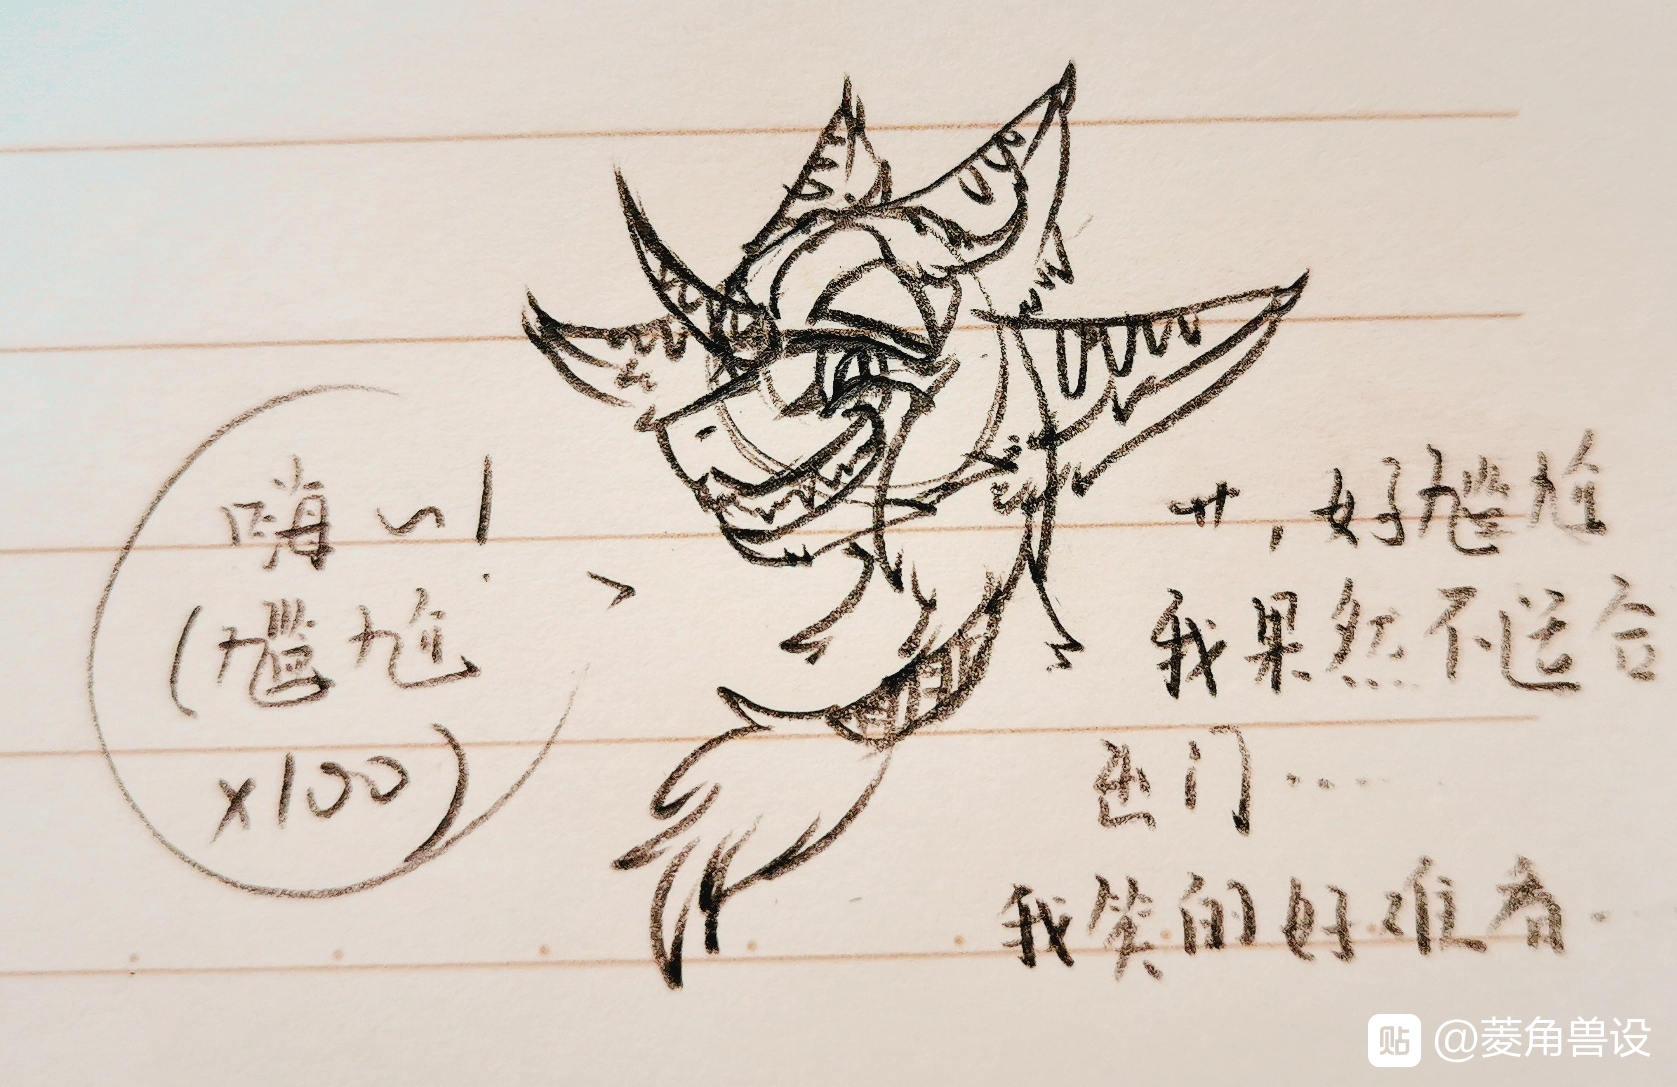 嗨~!
(尴尬
x100)
艹,好尴尬
我果然不适合
出门……
我笑的好难看…
贴 @菱角兽设